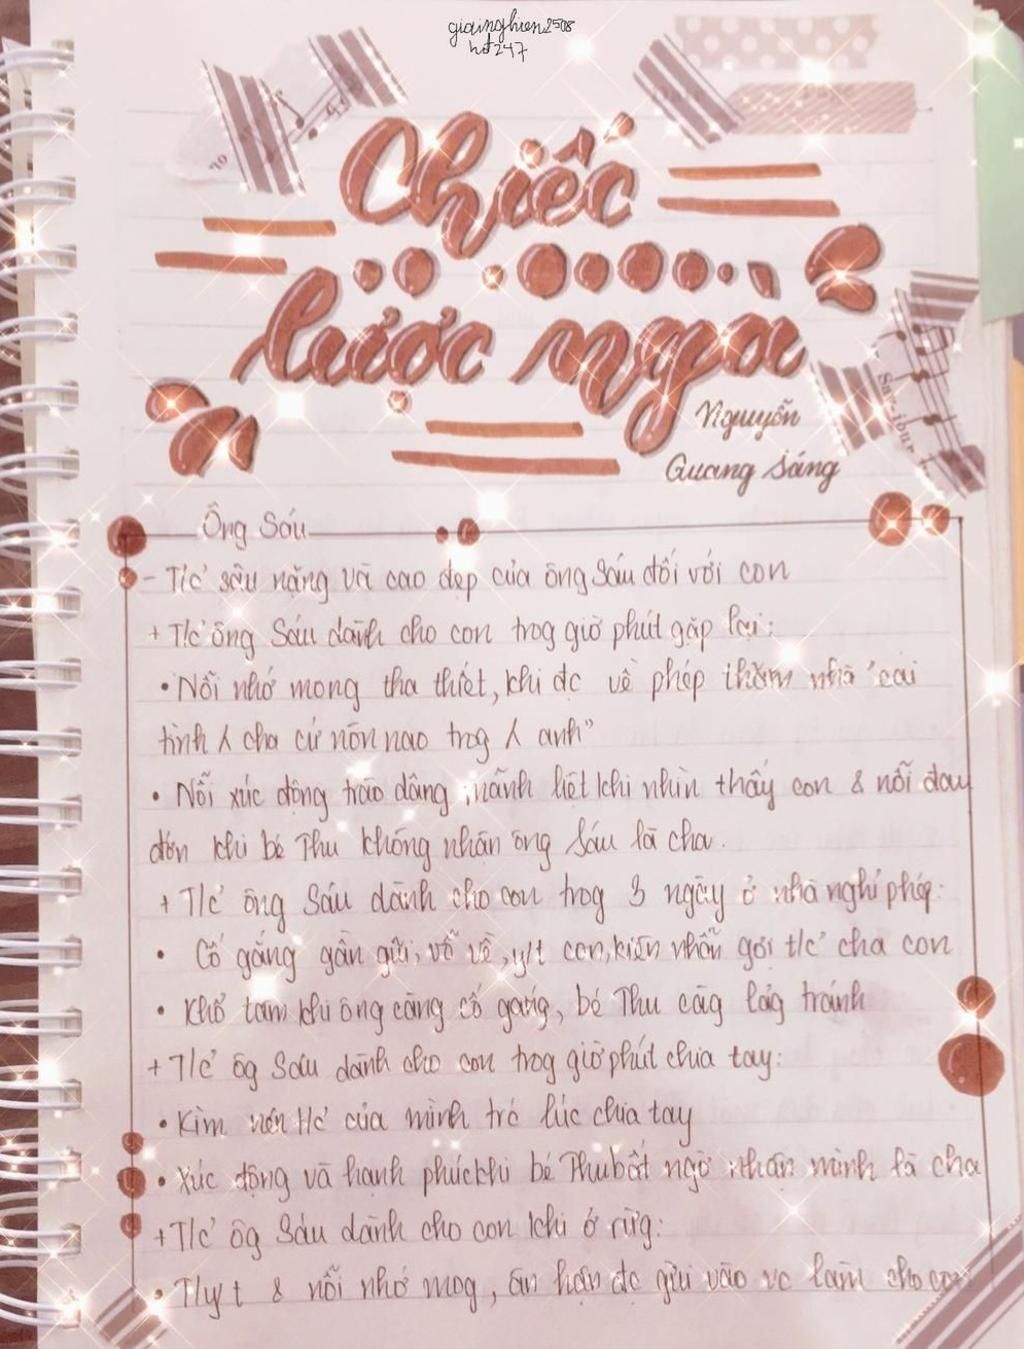 giainghien2508
hđ247
Chiếc
lược ngà
Nguyễn
Quang Sáng
Ông Sáu
- T/c' sâu nặng và cao đẹp của ông Sáu đối với con
+ T/c' ông Sáu dành cho con trog giờ phút gặp lại:
• Nỗi nhớ mong tha thiết, khi đc về phép thăm nhà "cái
tình λ cha cứ nôn nao trog λ anh"
• Nỗi xúc động trào dâng mãnh liệt khi nhìn thấy con & nỗi đau
đớn khi bé Thu không nhận ông Sáu là cha.
+ T/c' ông Sáu dành cho con trog 3 ngày ở nhà nghỉ phép:
• Cố gắng gần gũi, vỗ về, y/t con, kiên nhẫn gợi t/c' cha con
• Khổ tâm khi ông càng cố gắng, bé Thu càg lảg tránh
+ T/c' ôg Sáu dành cho con trog giờ phút chia tay:
• Kìm nén t/c' của mình trc lúc chia tay
• Xúc động và hạnh phúc khi bé Thu bất ngờ nhận mình là cha
+ T/c' ôg Sáu dành cho con khi ở rừg:
• T/y t & nỗi nhớ mog, ân hận đc gửi vào vc làm cho con